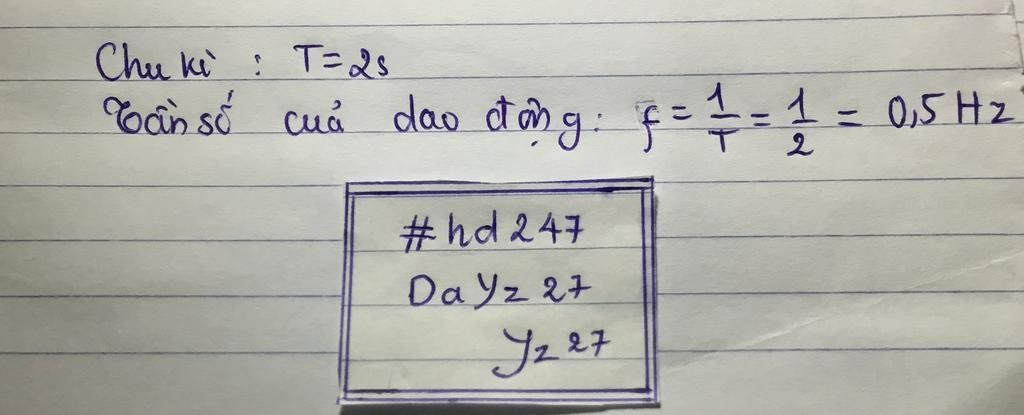 Chu kì : T = 2s
Tần số cuả dao động: f = 1/T = 1/2 = 0,5 Hz
#hd247
DaYz27
Yz27